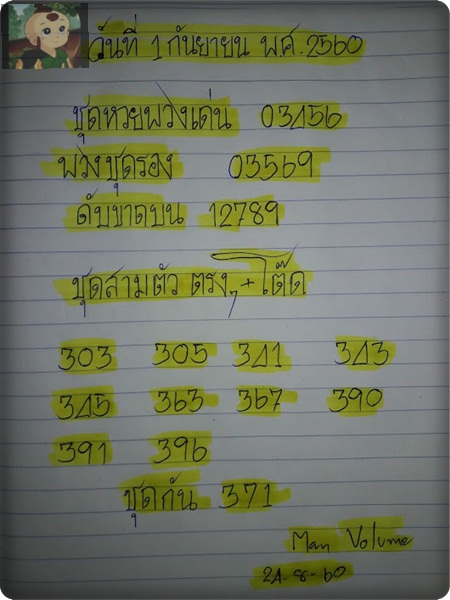 วันที่ 1 กันยายน พศ. 2560
ชุดหวยพวงเด่น 03456
พวงชุดรอง 03569
ดับขาดบน 12789
ชุดสามตัว ตรง,+โต๊ด
303 305 341 343
345 363 367 390
391 396
ชุดกัน 371
Man Volume
24-8-60